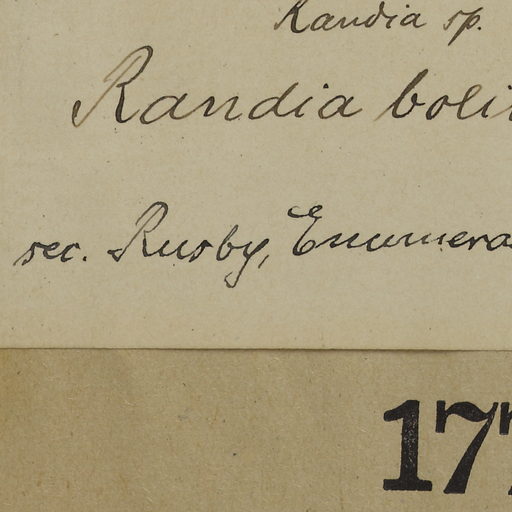 Randia sp.
Randia boli
sec. Rusby, Enumera
17